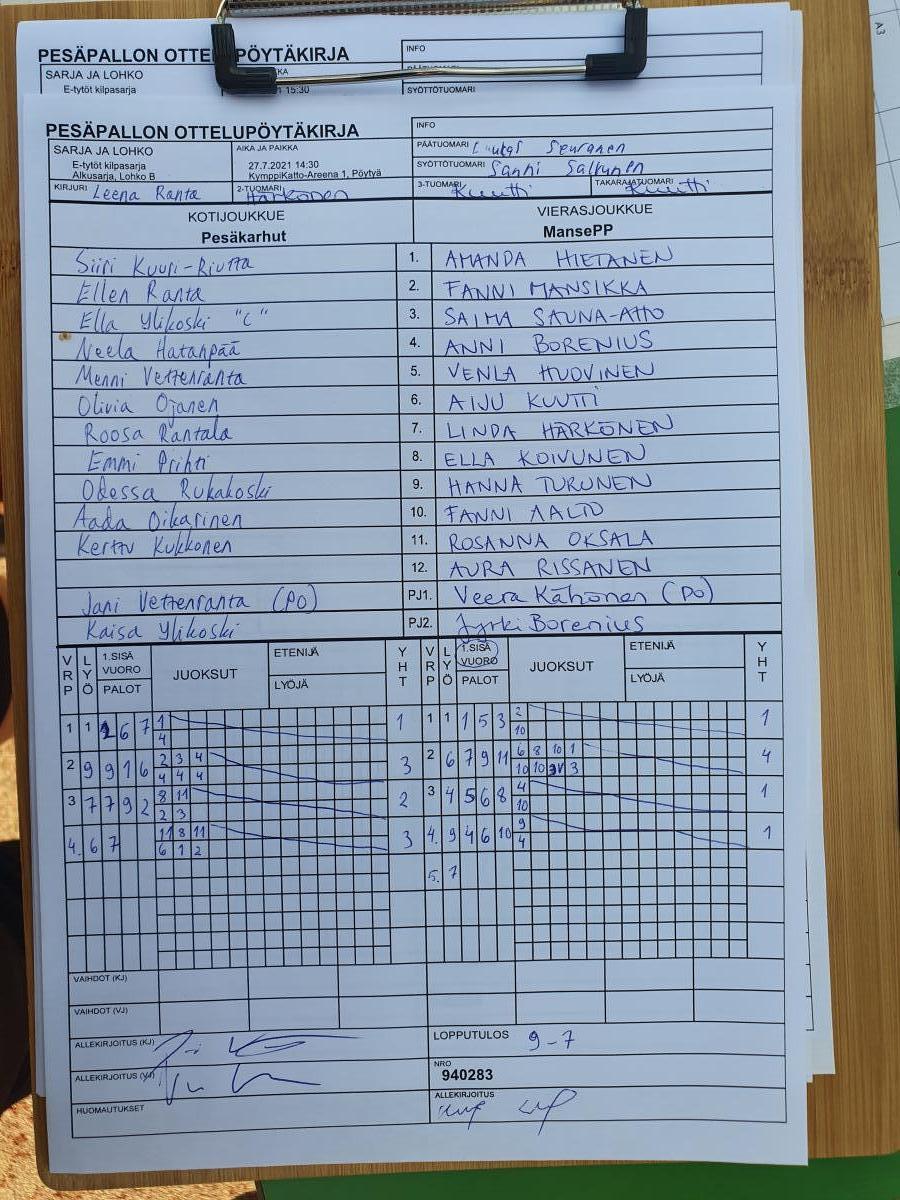 PESÄPALLON OTTELUPÖYTÄKIRJA
INFO
SARJA JA LOHKO
E-tytöt kilpasarja
15:30
SYÖTTÖTUOMARI
PESÄPALLON OTTELUPÖYTÄKIRJA
INFO
SARJA JA LOHKO
E-tytöt kilpasarja
Alkusarja, Lohko B
AIKA JA PAIKKA
27.7.2021 14:30
KymppiKatto-Areena 1, Pöytyä
PÄÄTUOMARI Seuranen
SYÖTTÖTUOMARI Sanni
KIRJURI Leena Ranta
2-TUOMARI Härkönen
3-TUOMARI Kuutti
TAKARAJATUOMARI Kuutti
KOTIJOUKKUE
Pesäkarhut
VIERASJOUKKUE
MansePP
Siiri Kuuri-Riutta 1. AMANDA HIETANEN
Ellen Ranta 2. FANNI MANSIKKA
Ella Ylikoski "C" 3. SAIMA SAUNA-AHO
Neela Hatanpää 4. ANNI BORENIUS
Menni Vettenranta 5. VENLA HUOVINEN
Olivia Ojanen 6. AIJU KUUTTI
Roosa Rantala 7. LINDA HÄRKÖNEN
Emmi Prihti 8. ELLA KOIVUNEN
Odessa Rukakoski 9. HANNA TURUNEN
Aada Oikarinen 10. FANNI AALTO
Kerttu Kukkonen 11. ROSANNA OKSALA
12. AURA RISSANEN
Jani Vettenranta (PO) PJ1. Veera Kähönen (PO)
Kaisa Ylikoski PJ2. Jyrki Borenius
VRP LYÖ 1.SISÄ VUORO PALOT JUOKSUT ETENIJÄ LYÖJÄ YHT VRP LYÖ 1.SISÄ VUORO PALOT JUOKSUT ETENIJÄ LYÖJÄ YHT
1 1 6 7 1 1 1 1 1 5 3 2 1
4 10
2 9 9 1 6 2 3 4 3 2 6 7 9 11 6 8 10 1 4
4 4 4 10 10 3
3 7 7 9 2 8 11 2 3 4 5 6 8 4 1
2 3 10
4. 6 7 11 8 11 3 4. 9 4 6 10 9 1
6 1 2 4
5. 7
VAIHDOT (KJ)
VAIHDOT (VJ)
ALLEKIRJOITUS (KJ)
LOPPUTULOS 9-7
ALLEKIRJOITUS (VJ)
NRO
940283
HUOMAUTUKSET
ALLEKIRJOITUS